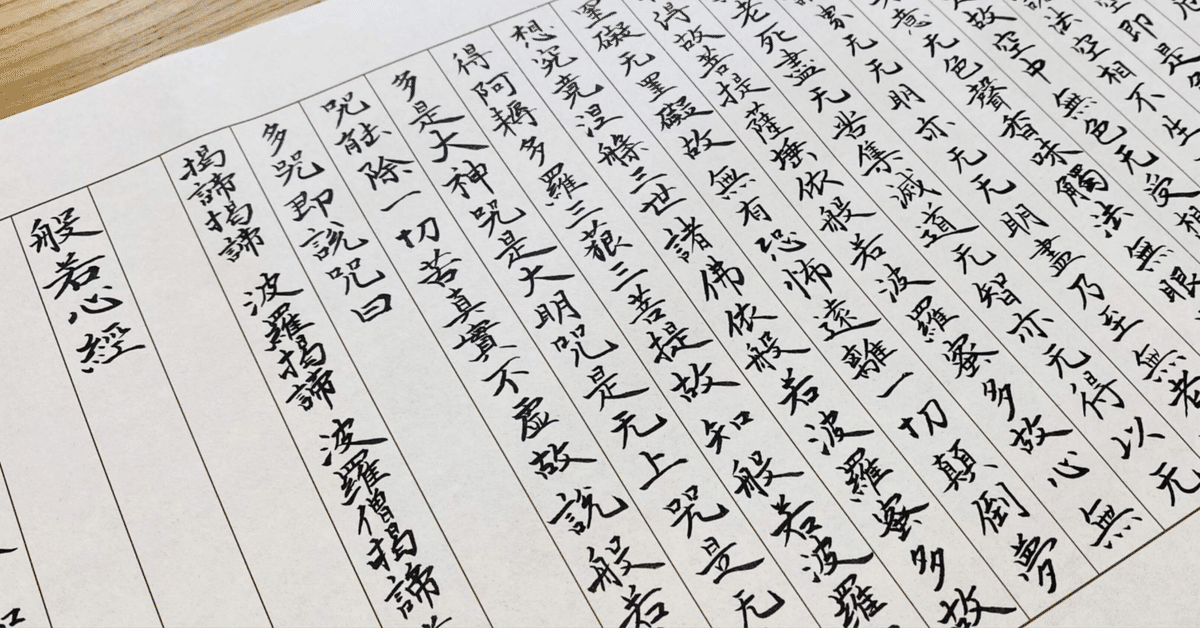 空即是
法空相不生
故空中無色无受想
意无色聲香味觸法無眼
无无明亦无无明盡乃至無老
老死盡无苦集滅道无智亦无得以无
得故菩提薩埵依般若波羅蜜多故心無
罣礙无罣礙故無有恐怖遠離一切顛倒夢
想究竟涅槃三世諸佛依般若波羅蜜多故
得阿耨多羅三藐三菩提故知般若波羅
多是大神咒是大明咒是无上咒是无
咒能除一切苦真實不虛故說般若
多咒即說咒曰
揭諦揭諦 波羅揭諦 波羅僧揭諦
般若心經